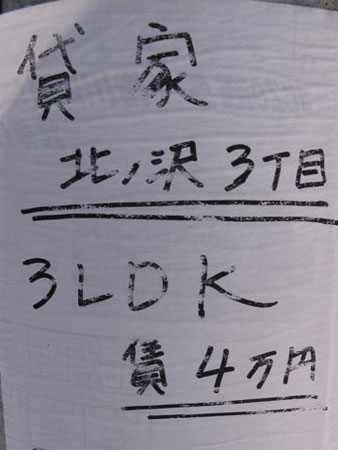 貸家
北ノ沢3丁目
3LDK
賃4万円